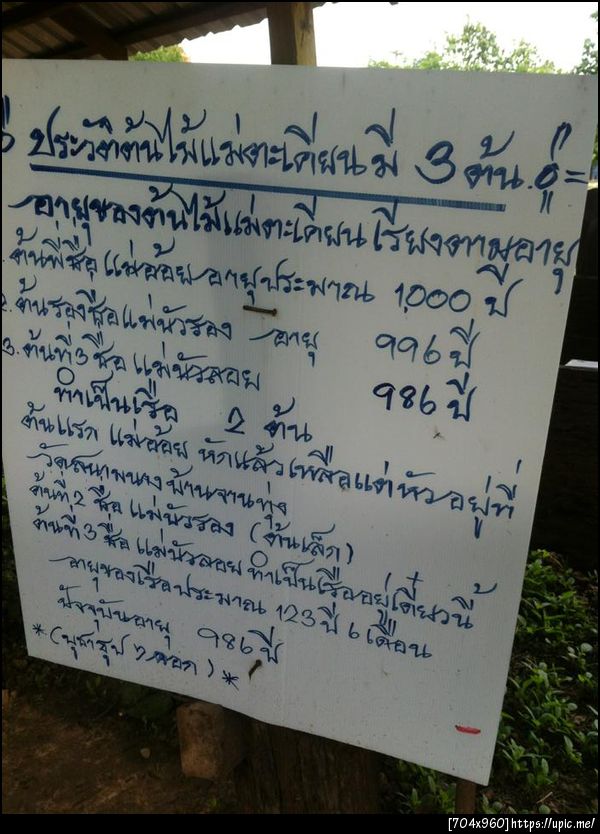 ประวัติต้นไม้แม่ตะเคียนมี 3 ต้น
อายุของต้นไม้แม่ตะเคียนเรียงตามอายุ
ต้นพี่ชื่อแม่อ้อย อายุประมาณ 1,000 ปี
2. ต้นรองชื่อแม่บัวรอง อายุ 996 ปี
3. ต้นที่ 3 ชื่อ แม่บัวลอย 986 ปี
ทำเป็นเรือ 2 ต้น
ต้นแรก แม่อ้อย หักแล้วเหลือแต่หัวอยู่ที่
วัดสนามนางบ้านจานทุ่ง
ต้นที่ 2 ชื่อ แม่บัวรอง (ต้นเล็ก)
ต้นที่ 3 ชื่อ แม่บัวลอย ทำเป็นเรืออยู่เดี๋ยวนี้
อายุของเรือประมาณ 123 ปี 6 เดือน
ปัจจุบันอายุ 986 ปี
*(บูชาธูป 7 ดอก)*
[704x960]https://upic.me/